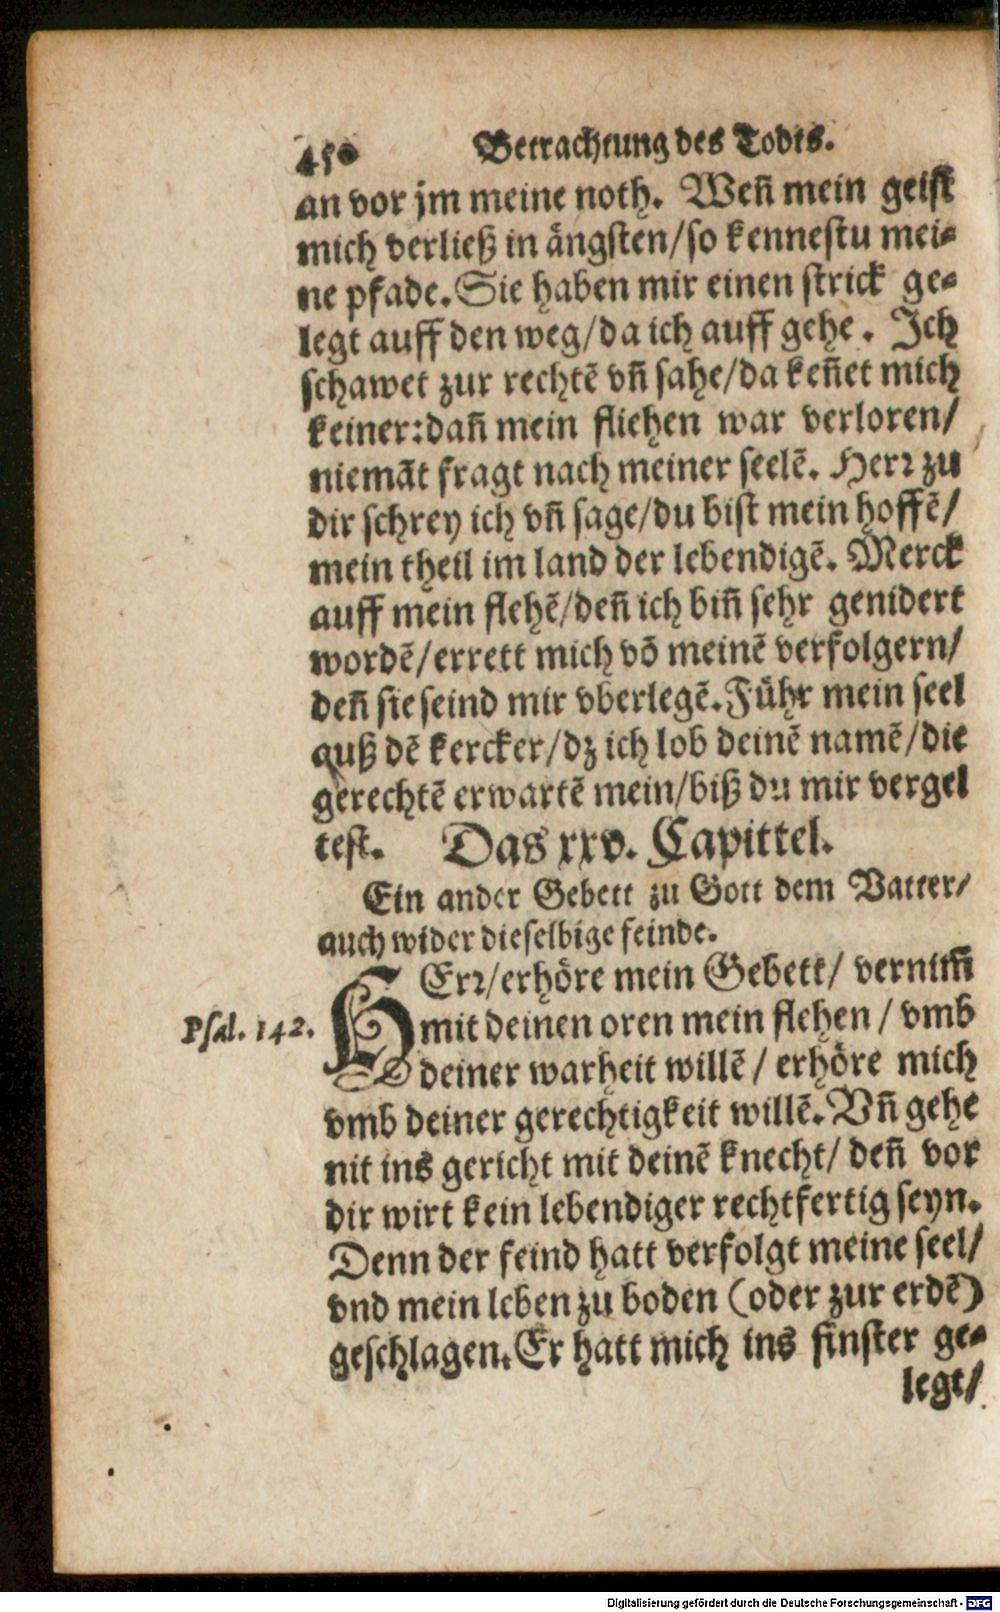 450 Betrachtung des Todts.
an vor jm meine noth. Weñ mein geist
mich verließ in ängsten/so kennestu mei-
ne pfade. Sie haben mir einen strick ge-
legt auff den weg/da ich auff gehe. Ich
schawet zur rechtẽ vñ sahe/da keñet mich
keiner:dañ mein fliehen war verloren/
niemãt fragt nach meiner seelẽ. Herr zu
dir schrey ich vñ sage/du bist mein hoffẽ/
mein theil im land der lebendigẽ. Merck
auff mein flehẽ/deñ ich biñ sehr genidert
wordẽ/errett mich võ meinẽ verfolgern/
deñ sie seind mir vberlegẽ. Führ mein seel
auß dẽ kercker/dz ich lob deinẽ namẽ/die
gerechtẽ erwartẽ mein/biß du mir vergel
test. Das xxv. Capittel.
Ein ander Gebett zu Gott dem Vatter/
auch wider dieselbige feinde.
HErr/erhöre mein Gebett/ vernim̃
Psal. 142. mit deinen oren mein flehen / vmb
deiner warheit willẽ / erhöre mich
vmb deiner gerechtigkeit willẽ. Vñ gehe
nit ins gericht mit deinẽ knecht/ deñ vor
dir wirt kein lebendiger rechtfertig seyn.
Denn der feind hatt verfolgt meine seel/
vnd mein leben zu boden (oder zur erdẽ)
geschlagen. Er hatt mich ins finster ge-
legt/
Digitalisierung gefördert durch die Deutsche Forschungsgemeinschaft - DFG